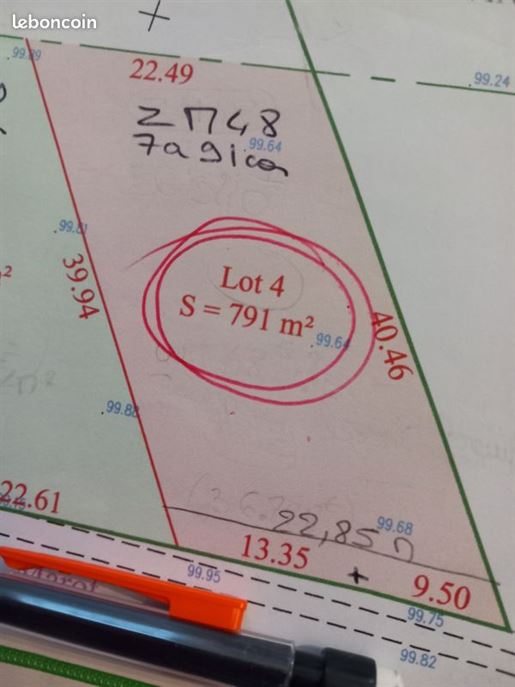 leboncoin
99.89
22.49
99.24
99.64
99.81
39.94
Lot 4
S = 791 m²
99.64
40.46
99.88
22.61
22,85 m
99.68
13.35 + 9.50
99.95
99.75
99.82